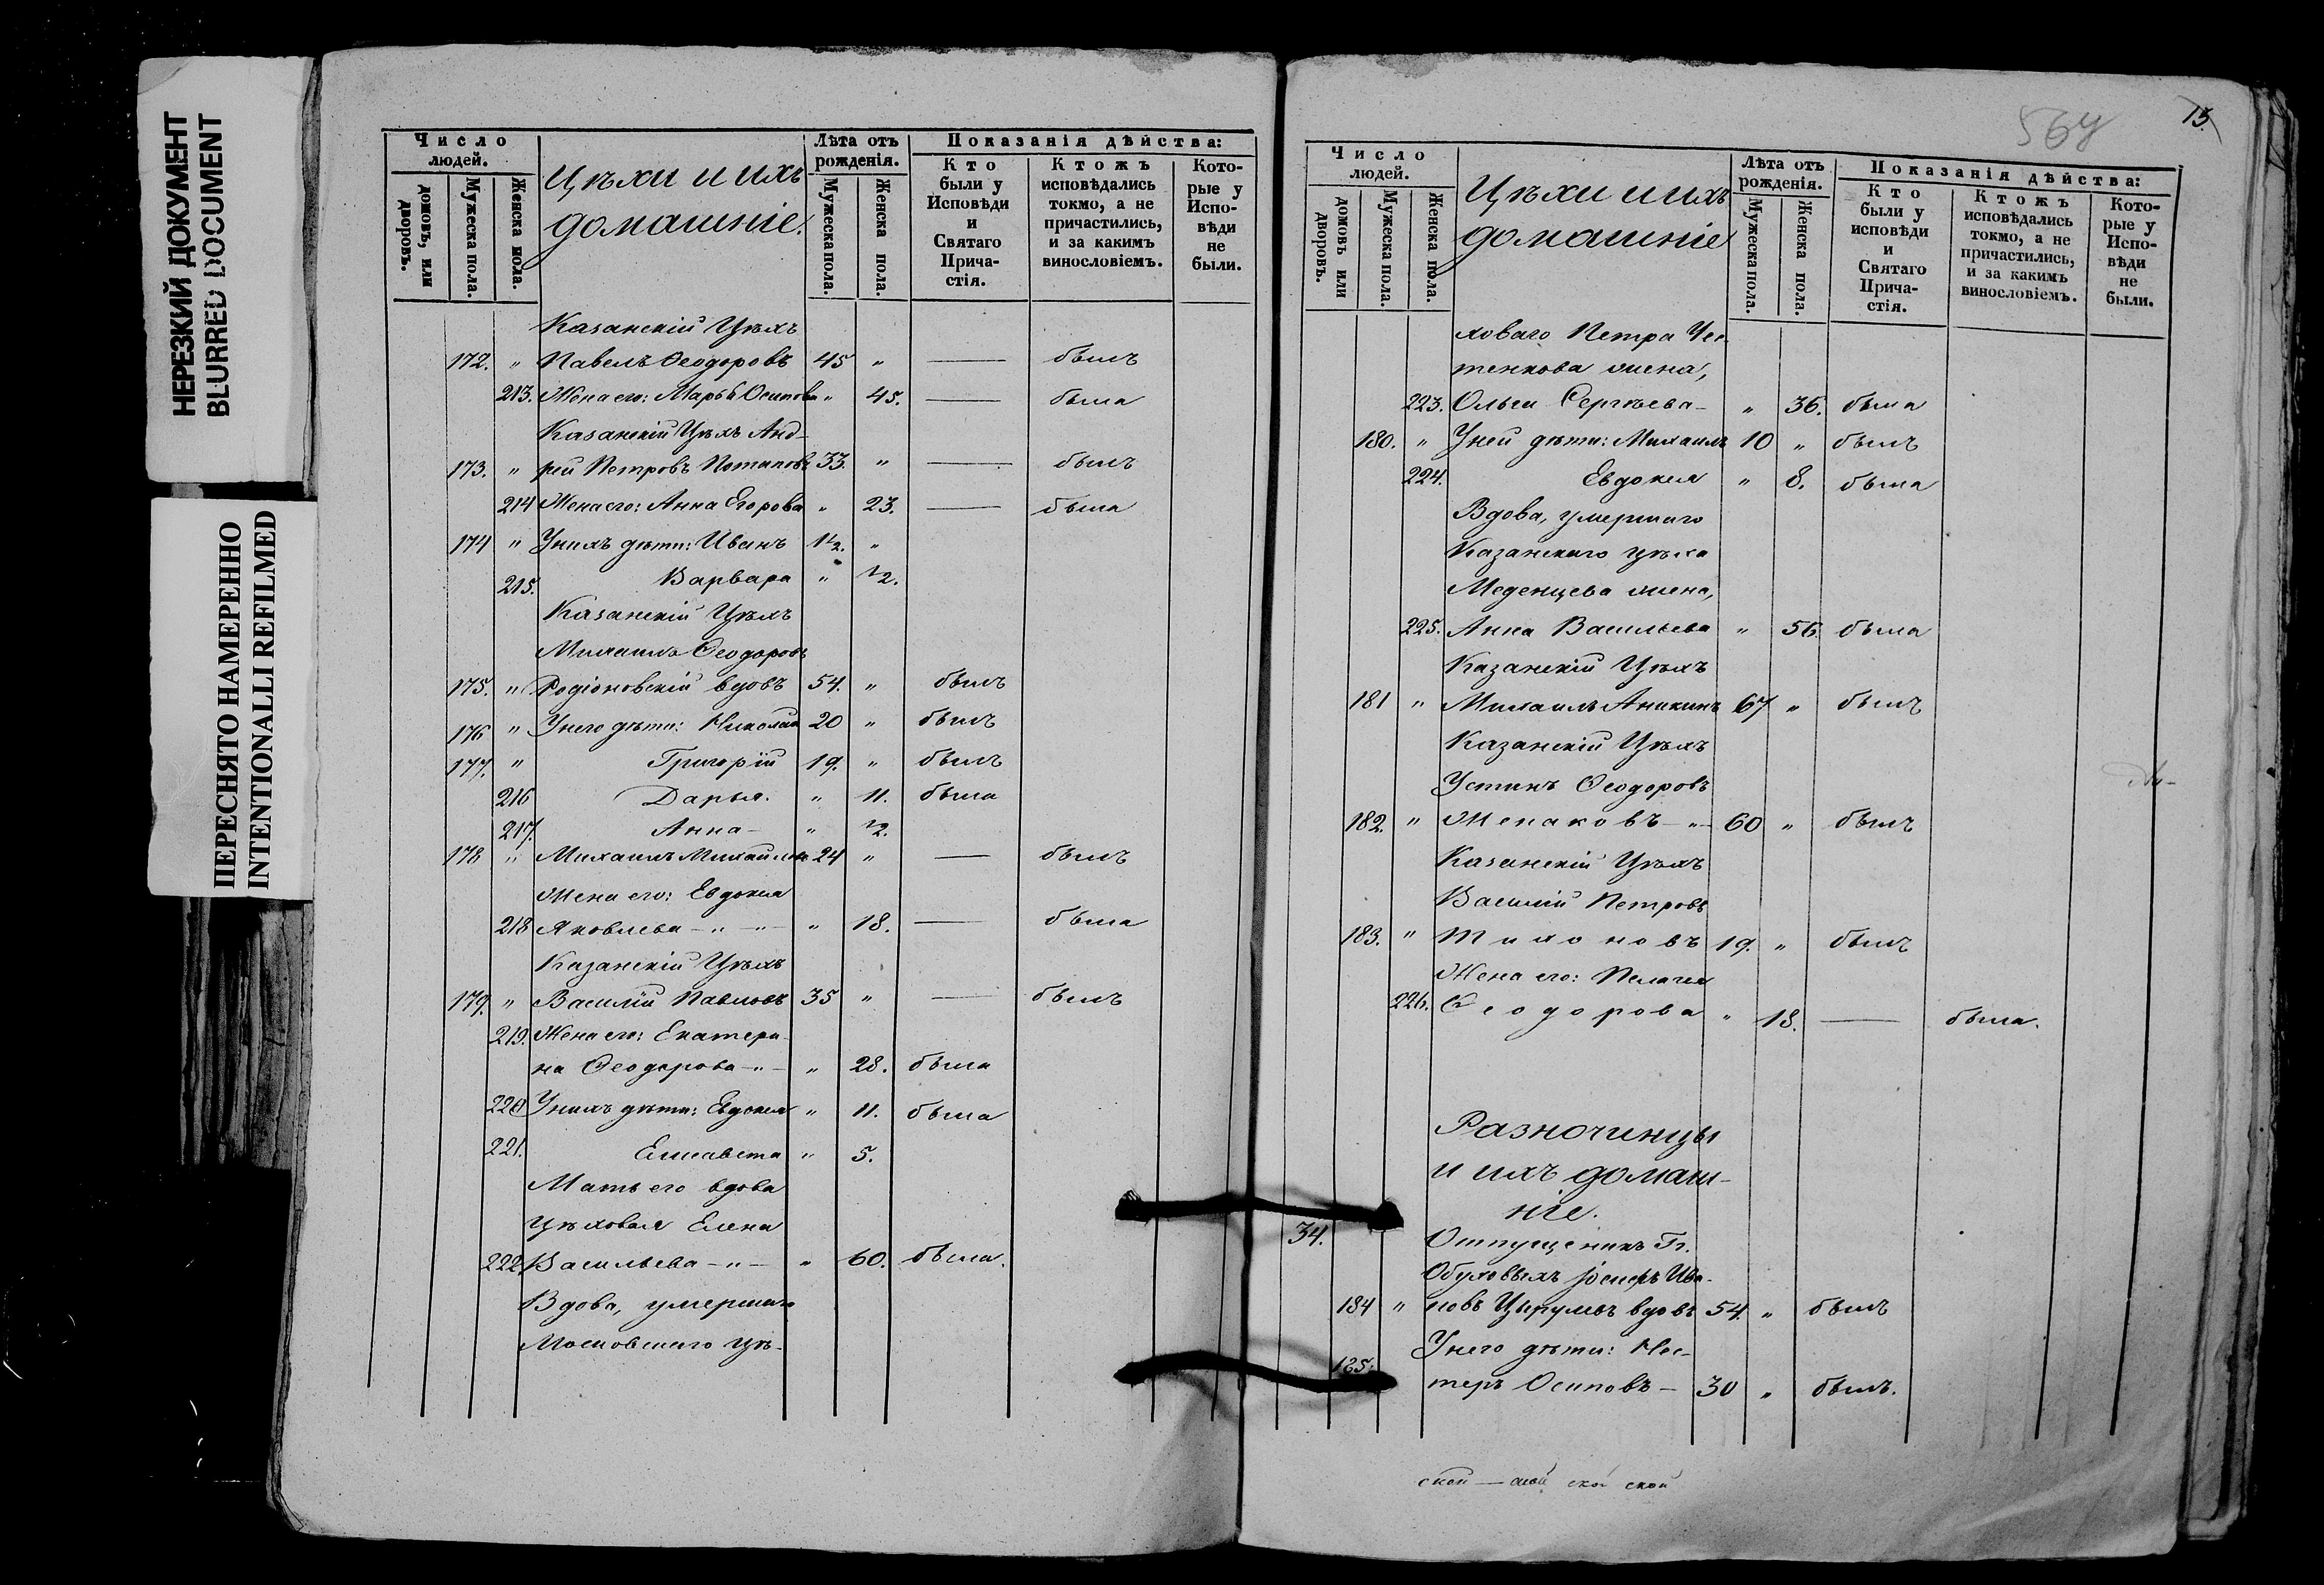 НЕРЕЗКИЙ ДОКУМЕНТ
BLURRED DOCUMENT
ПЕРЕСНЯТО НАМЕРЕННО
INTENTIONALLI REFILMED
Число людей.
домовъ, или дворовъ.
Мужеска пола.
Женска пола.
Цѣхи и ихъ
домашніе.
Лѣта отъ рожденія.
Мужеска пола.
Женска пола.
Показанія дѣйства:
Кто были у Исповѣди и Святаго Прича-стія.
Ктожъ исповѣдались токмо, а не причастились, и за какимъ винословіемъ.
Кото-рые у Испо-вѣди не были.
Казанскій Цѣхъ
172. " Павелъ Ѳеодоровъ 45 " — былъ
213. Жена его: Марья Осипова " 45. — была
Казанскій Цѣхъ Анд-
173. " рей Петровъ Потаповъ 33. " — былъ
214 Жена его: Анна Егорова " 23. — была
174 " У нихъ дѣти: Иванъ 1½. "
215. Варвара " ½.
Казанскій Цѣхъ
Михаилъ Ѳеодоровъ
175. " Родіоновскій вдовъ 54. " былъ
176 " У него дѣти: Николай 20 " былъ
177. " Григорій 19. " былъ
216 Дарья. " 11. была
217. Анна - " ½.
178 " Михаилъ Михайловъ 24 " — былъ
Жена его: Евдокия
218 Яковлева - " - " - " 18. — была
Казанскій Цѣхъ
179. " Василій Павловъ 35 " — былъ
219. Жена его: Екатери-
на Ѳеодорова - " - " 28. была
220 У нихъ дѣти: Евдокия " 11. была
221. Елисавета " 5.
Мать его вдова
цѣховая Елена
222. Васильева - " - " 60. была.
Вдова, умершаго
Московскаго цѣ-
564
13.
Число людей.
домовъ или дворовъ.
Мужеска пола.
Женска пола.
Цѣхи и ихъ
домашніе
Лѣта отъ рожденія.
Мужеска пола.
Женска пола.
Показанія дѣйства:
Кто были у исповѣди и Святаго Прича-стія.
Ктожъ исповѣдались токмо, а не причастились, и за какимъ винословіемъ.
Кото-рые у Испо-вѣди не были.
ховаго Петра
тенкова жена,
223. Ольга Сергѣева - " 36. была
180. " У ней дѣти: Михаилъ 10 " былъ
224. Евдокия " 8. была
Вдова, умершаго
Казанскаго цѣха
Меденцева жена,
225. Анна Васильева " 56 была
Казанскій Цѣхъ
181 " Михаилъ Аникинъ 67 " былъ
Казанскій Цѣхъ
Устинъ Ѳеодоровъ
182. " Менаковъ - " - 60 " былъ
Казанскій Цѣхъ
Василій Петровъ
183. " Тихоновъ 19. " былъ
Жена его: Пелагея
226. Ѳеодорова " 18. — была.
Разночинцы
и ихъ домаш-
ніе.
34. Отпущеникъ Гг.
Обуховыхъ Іосифъ Ива-
184 " новъ вдовъ 54. " былъ
У него дѣти: Нес-
185. теръ Осиповъ - 30 " былъ.
ской — ской ской ской